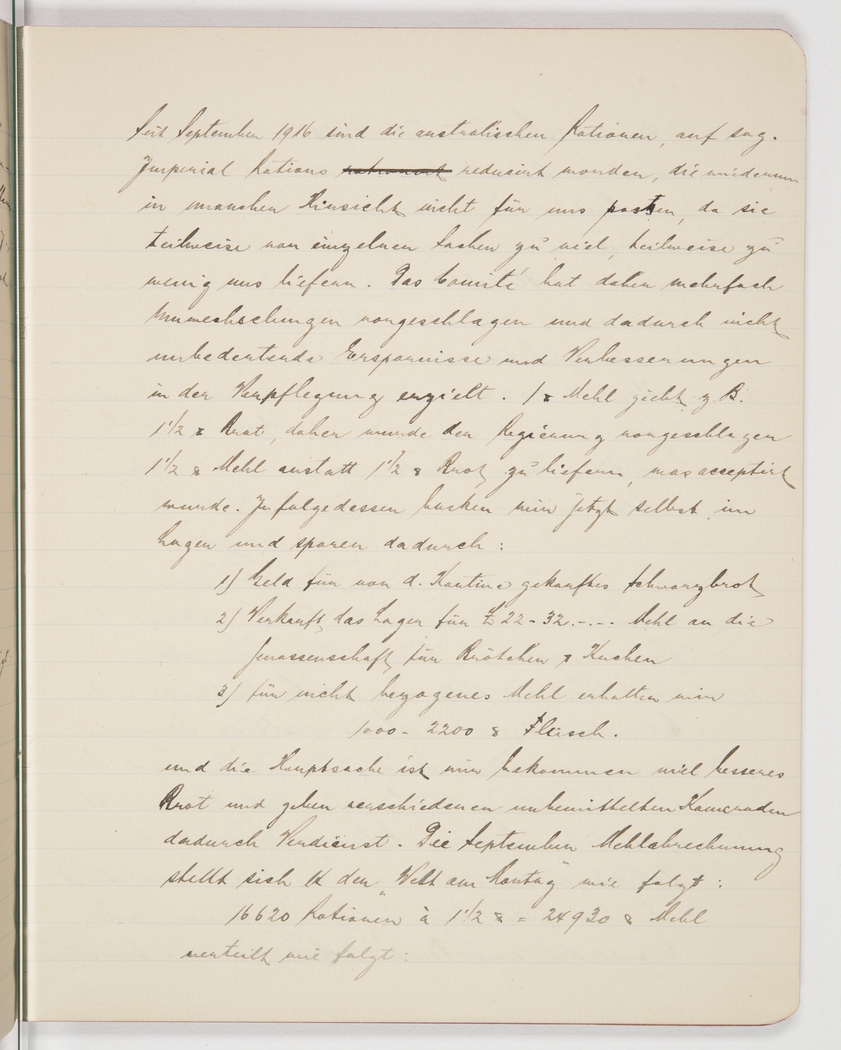 Seit September 1916 sind die australischen Rationen, auf sog.
Imperial Rations reduzirt worden, die wiederum
in mancher Hinsicht nicht für uns passten, da sie
teilweise von einzelnen Sachen zu viel, teilweise zu
wenig uns liefern. Das Comité hat daher mehrfach
Umwechselungen vorgeschlagen und dadurch nicht
unbedeutende Ersparnisse und Verbesserungen
in der Verpflegung erzielt. 1 ℔ Mehl giebt z. B.
1 1/2 ℔ Brot, daher wurde der Regierung vorgeschlagen
1 1/2 ℔ Mehl anstatt 1 1/2 ℔ Brot zu liefern, was acceptirt
wurde. Infolgedessen backen wir jetzt selbst im
Lager und sparen dadurch:
1) Geld für von d. Kantine gekauftes Schwarzbrot
2) Verkauft das Lager für £ 22-32.-.-. Mehl an die
Genossenschaft für Brötchen & Kuchen
3) für nicht bezogenes Mehl erhalten wir
1000 - 2200 ℔ Fleisch.
und die Hauptsache ist wir bekommen viel besseres
Brot und geben verschiedenen unbemittelten Kameraden
dadurch Verdienst. Die September Mehlabrechnung
stellt sich lt der "Welt am Montag" wie folgt:
16620 Rationen à 1 1/2 ℔ = 24930 ℔ Mehl
verteilt wie folgt: